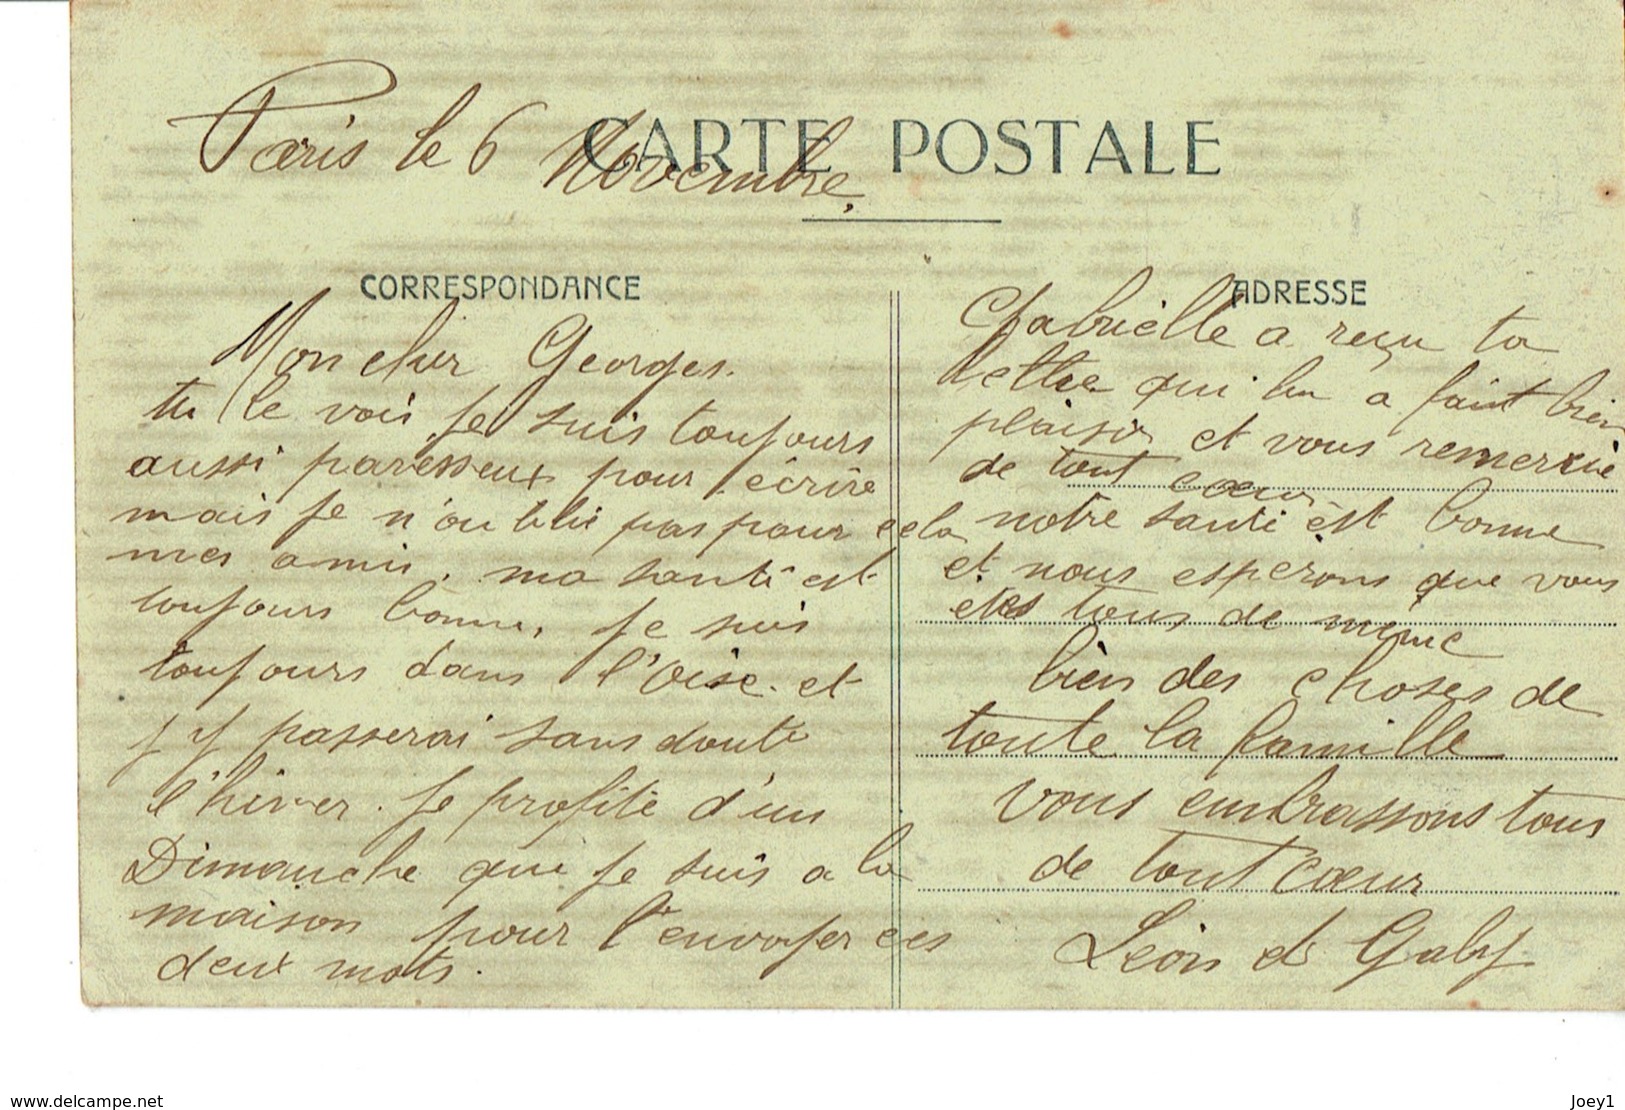 Paris le 6 Novembre,
CARTE POSTALE
CORRESPONDANCE
Mon cher Georges.
tu le vois je suis toujours
aussi paresseux pour écrire
mais je n'oublie pas pour cela
mes amis. ma santé est
toujours bonne, je suis
toujours dans l'Oise. et
j'y passerai sans doute
l'hiver. je profite d'un
Dimanche que je suis a la
maison pour t'envoyer ces
deux mots.
ADRESSE
Gabrielle a reçu ta
lettre qui lui a fait bien
plaisir et vous remercie
de tout coeur
notre santé est bonne
et nous esperons que vous
etes tous de même
bien des choses de
toute la famille
vous embrassons tous
de tout coeur
Léon et Gaby
www.delcampe.net
Joey1